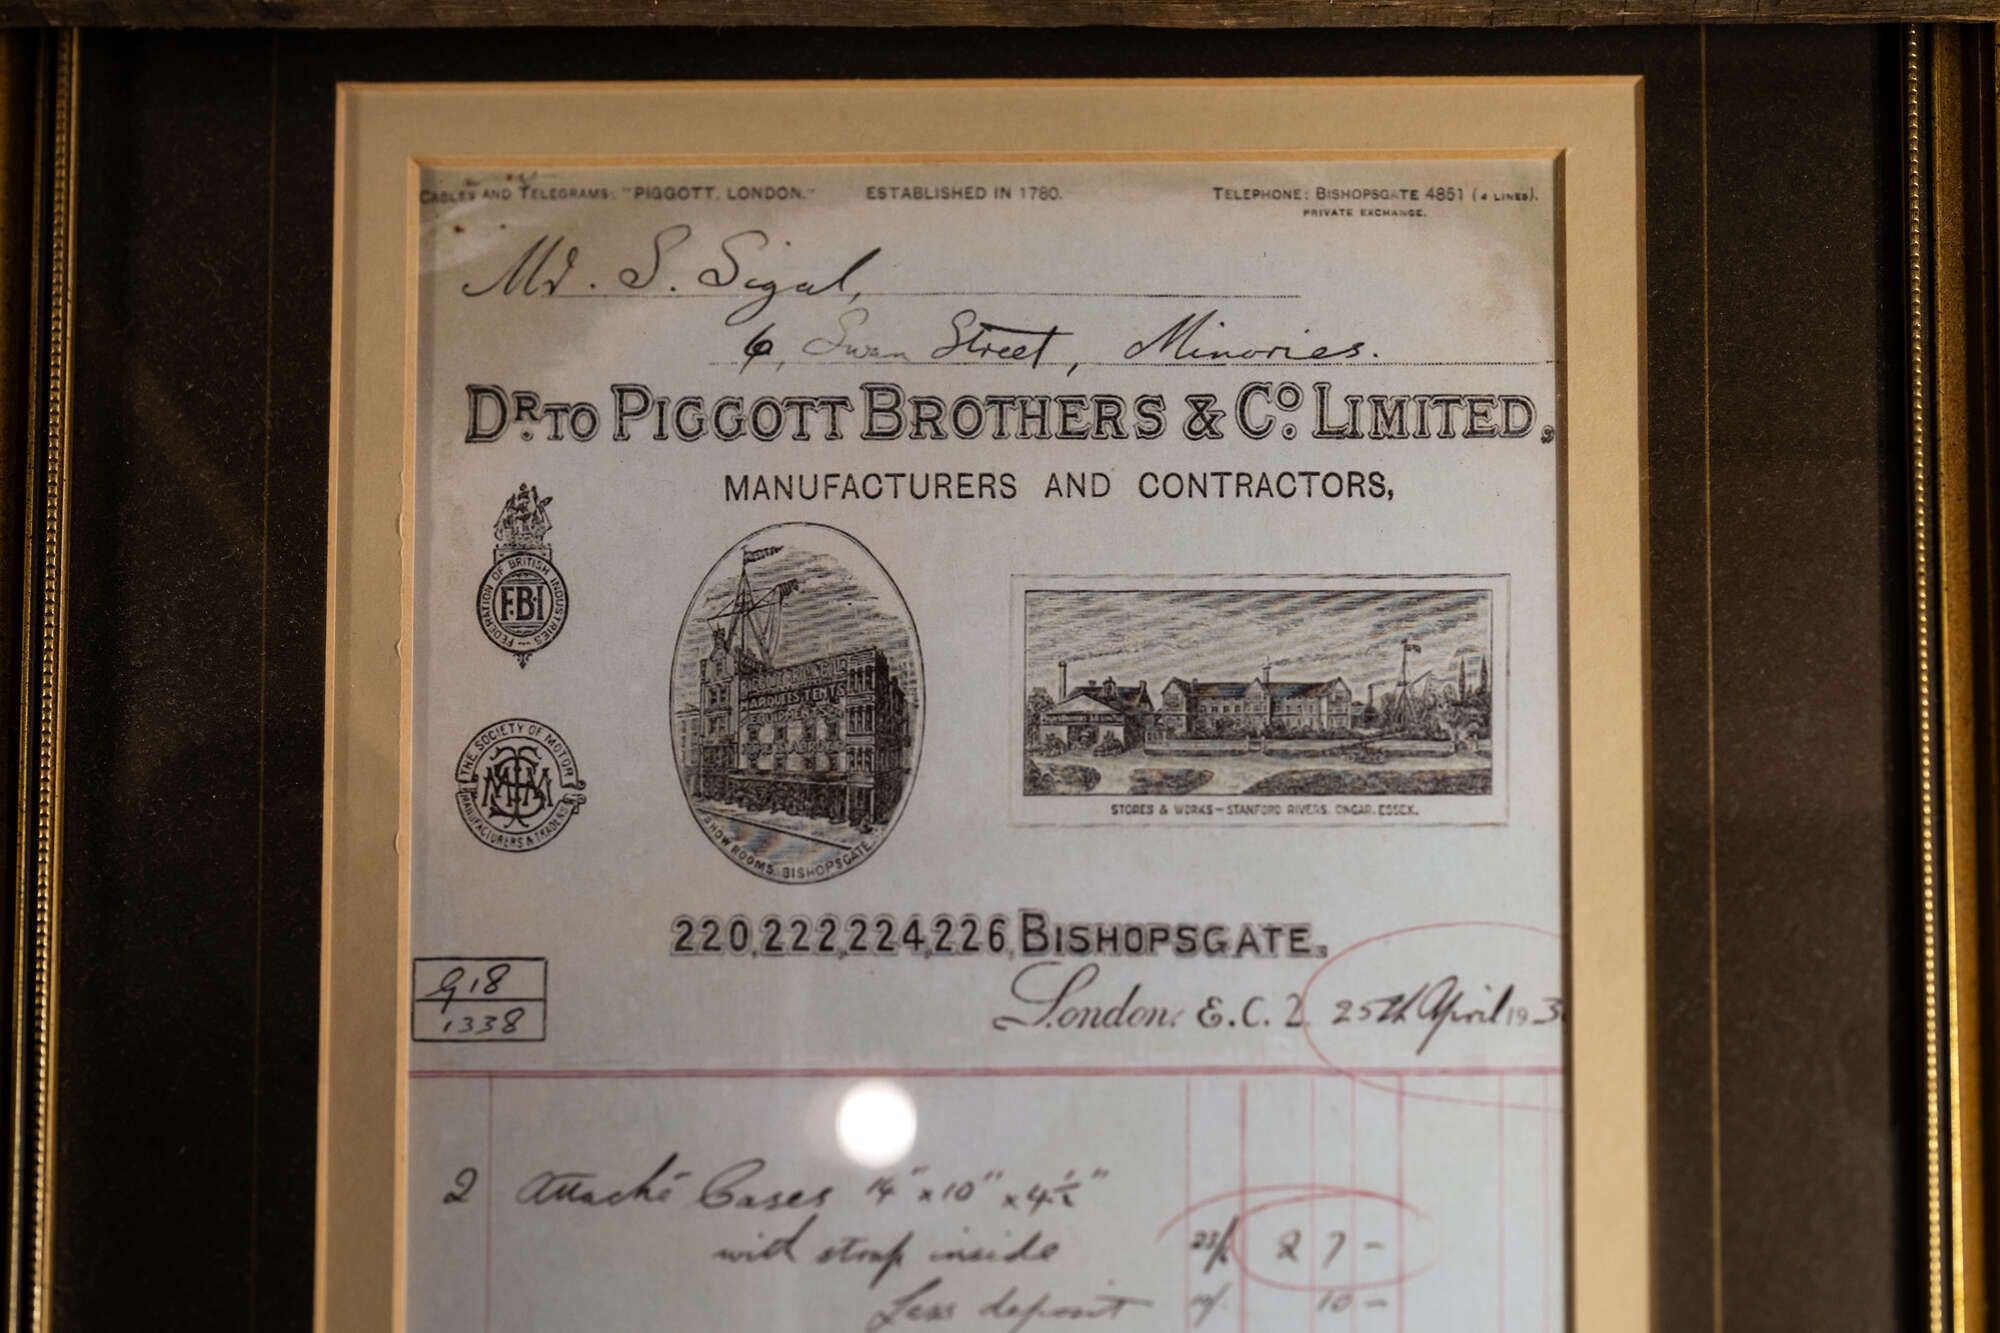 CABLES AND TELEGRAMS: "PIGGOTT, LONDON." ESTABLISHED IN 1780. TELEPHONE: BISHOPSGATE 4851 (4 LINES).
PRIVATE EXCHANGE.
Mr. S. Sigal,
6, Swan Street, Minories.
DR. TO PIGGOTT BROTHERS & CO. LIMITED,
MANUFACTURERS AND CONTRACTORS,
FEDERATION OF BRITISH INDUSTRIES
F.B.I
THE SOCIETY OF MOTOR
MANUFACTURERS & TRADERS
MARQUEES TENTS
SHOW ROOMS. BISHOPSGATE.
STORES & WORKS – STANFORD RIVERS. ONGAR. ESSEX.
220, 222, 224, 226, BISHOPSGATE,
G18
1338
London, E.C. 2 25th April 193
2 Attaché Cases 14" x 10" x 4½"
with strap inside 2 7 –
Less deposit 10 –